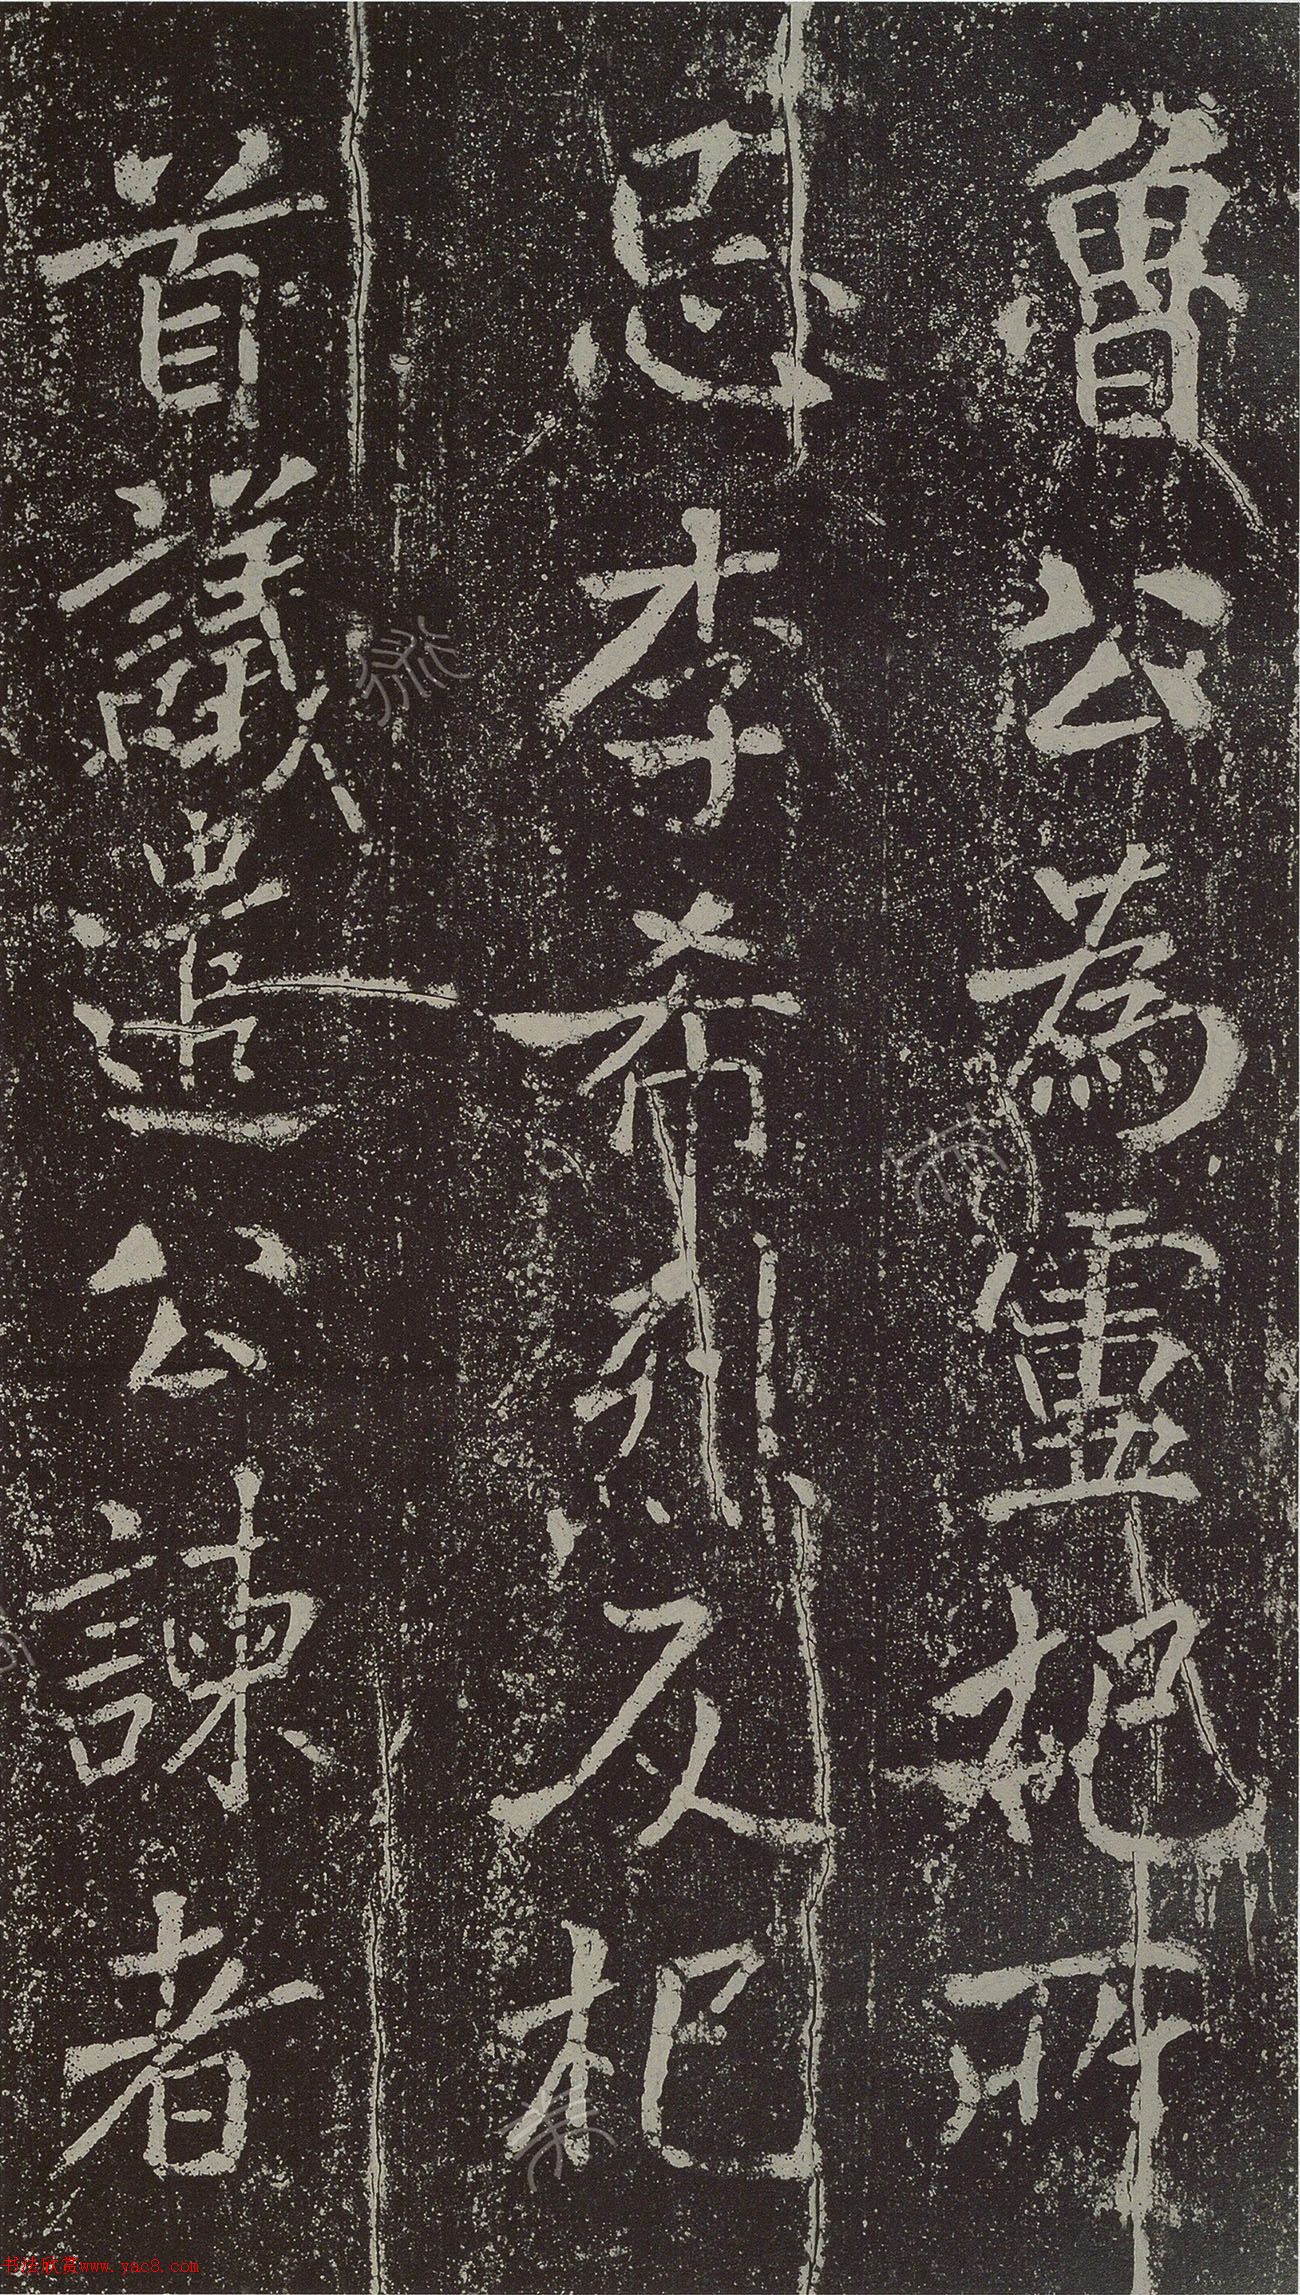 魯公為盧杞所
忌李希烈反杞
首議遣公諫者
书法欣赏www.yac8.com